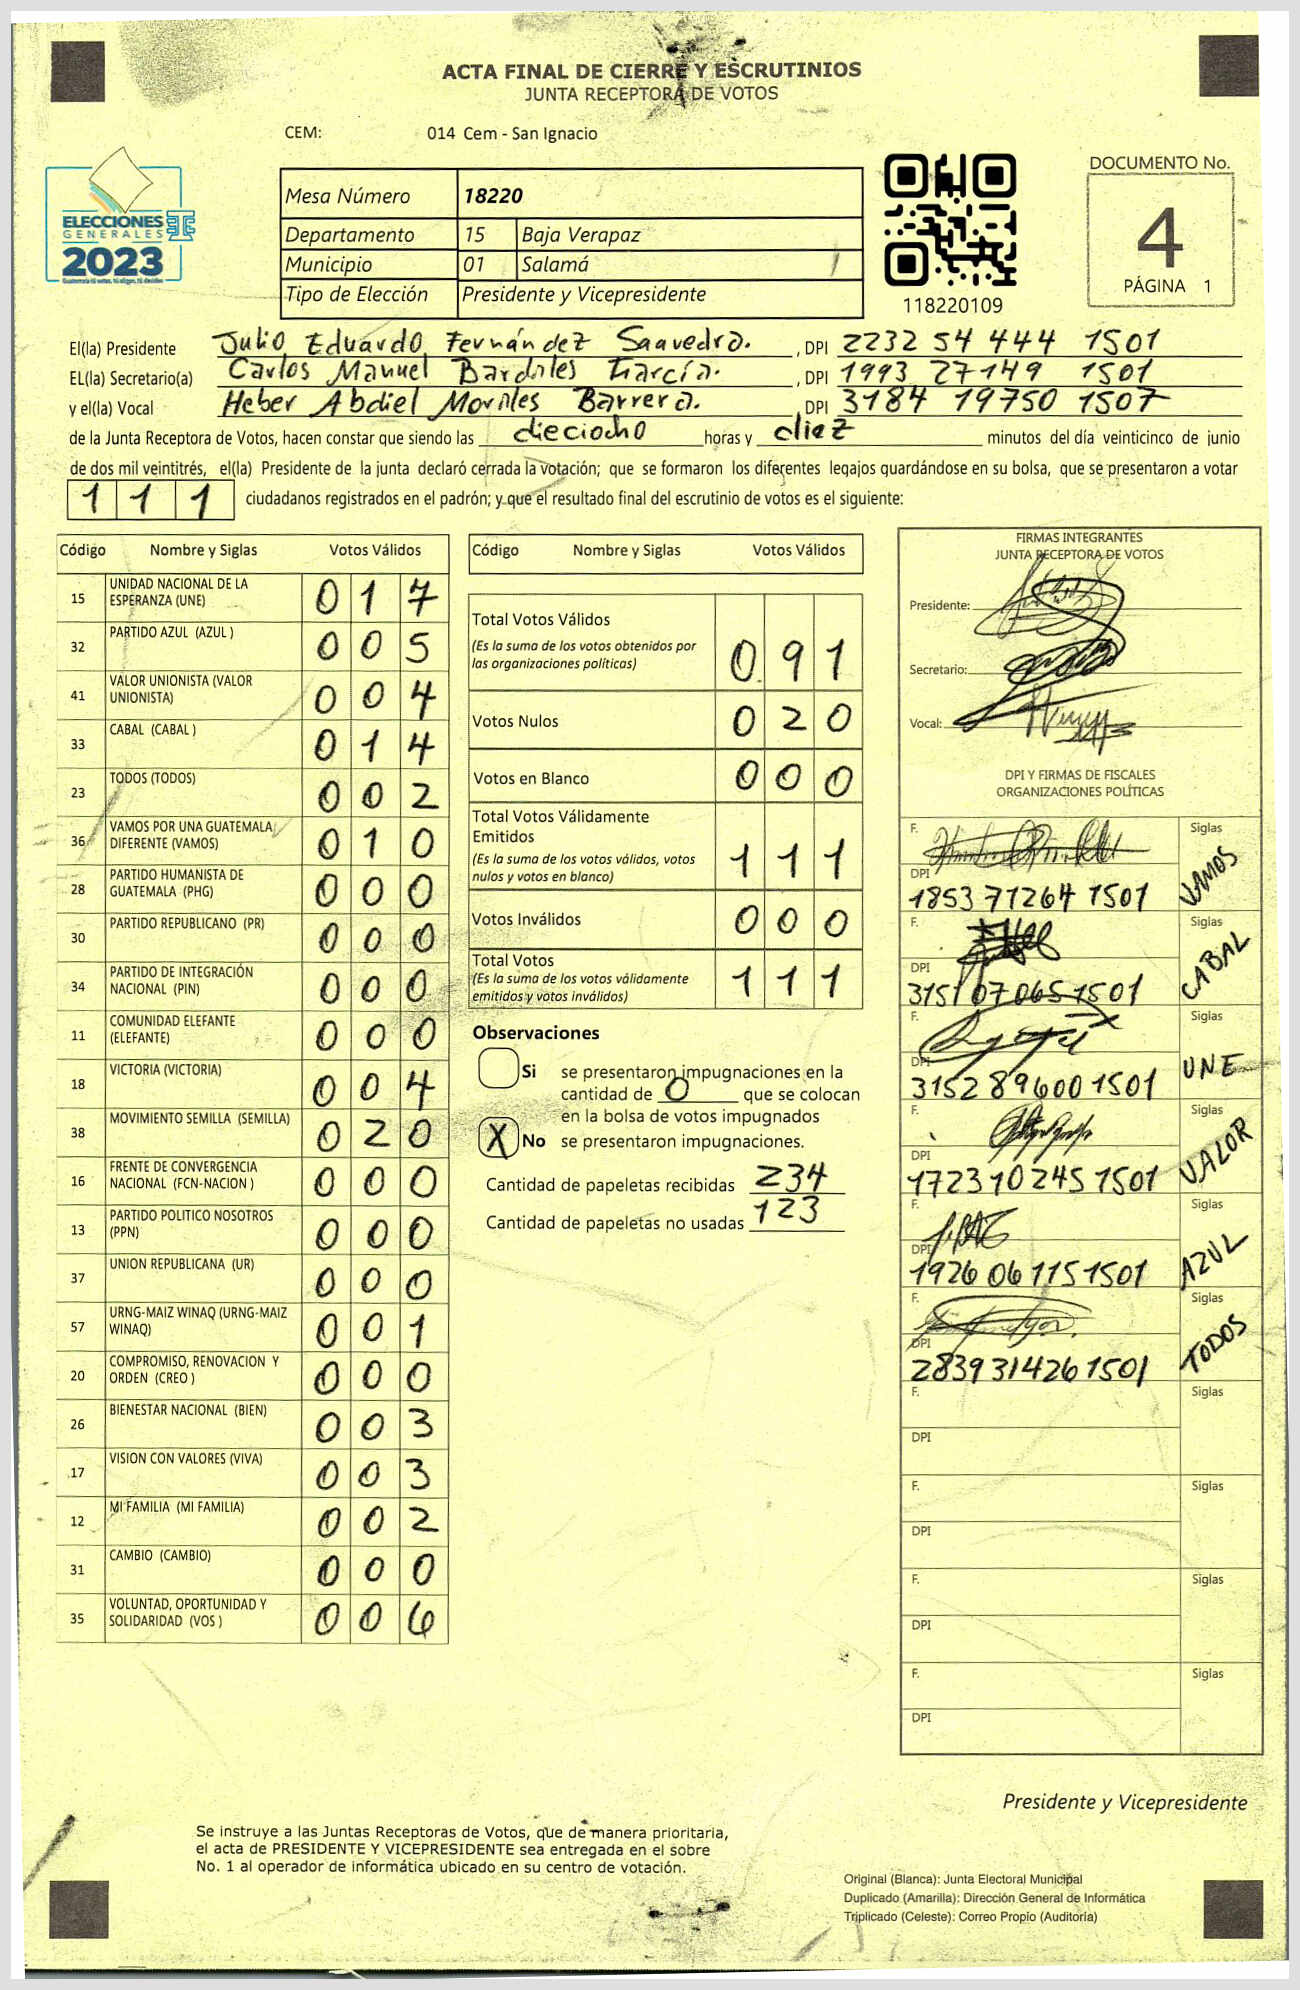 ACTA FINAL DE CIERRE Y ESCRUTINIOS
JUNTA RECEPTORA DE VOTOS
CEM: 014 Cem - San Ignacio
DOCUMENTO No.
4
PÁGINA 1
ELECCIONES
GENERALES
2023
Mesa Número 18220
Departamento 15 Baja Verapaz
Municipio 01 Salamá
Tipo de Elección Presidente y Vicepresidente
118220109
El(la) Presidente Julio Eduardo Fernández Saavedra. , DPI 2232 54 444 1501
EL(la) Secretario(a) Carlos Manuel Bardales García. , DPI 1993 27149 1501
y el(la) Vocal Heber Abdiel Morales Barrera. , DPI 3184 19750 1507
de la Junta Receptora de Votos, hacen constar que siendo las dieciocho horas y diez minutos del día veinticinco de junio
de dos mil veintitrés, el(la) Presidente de la junta declaró cerrada la votación; que se formaron los diferentes legajos guardándose en su bolsa, que se presentaron a votar
1 1 1 ciudadanos registrados en el padrón; y que el resultado final del escrutinio de votos es el siguiente:
Código Nombre y Siglas Votos Válidos
15 UNIDAD NACIONAL DE LA ESPERANZA (UNE) 0 1 7
32 PARTIDO AZUL (AZUL ) 0 0 5
41 VALOR UNIONISTA (VALOR UNIONISTA) 0 0 4
33 CABAL (CABAL ) 0 1 4
23 TODOS (TODOS) 0 0 2
36 VAMOS POR UNA GUATEMALA DIFERENTE (VAMOS) 0 1 0
28 PARTIDO HUMANISTA DE GUATEMALA (PHG) 0 0 0
30 PARTIDO REPUBLICANO (PR) 0 0 0
34 PARTIDO DE INTEGRACIÓN NACIONAL (PIN) 0 0 0
11 COMUNIDAD ELEFANTE (ELEFANTE) 0 0 0
18 VICTORIA (VICTORIA) 0 0 4
38 MOVIMIENTO SEMILLA (SEMILLA) 0 2 0
16 FRENTE DE CONVERGENCIA NACIONAL (FCN-NACION ) 0 0 0
13 PARTIDO POLITICO NOSOTROS (PPN) 0 0 0
37 UNION REPUBLICANA (UR) 0 0 0
57 URNG-MAIZ WINAQ (URNG-MAIZ WINAQ) 0 0 1
20 COMPROMISO, RENOVACION Y ORDEN (CREO ) 0 0 0
26 BIENESTAR NACIONAL (BIEN) 0 0 3
17 VISION CON VALORES (VIVA) 0 0 3
12 MI FAMILIA (MI FAMILIA) 0 0 2
31 CAMBIO (CAMBIO) 0 0 0
35 VOLUNTAD, OPORTUNIDAD Y SOLIDARIDAD (VOS ) 0 0 6
Código Nombre y Siglas Votos Válidos
Total Votos Válidos 0 9 1
(Es la suma de los votos obtenidos por
las organizaciones políticas)
Votos Nulos 0 2 0
Votos en Blanco 0 0 0
Total Votos Válidamente
Emitidos 1 1 1
(Es la suma de los votos válidos, votos
nulos y votos en blanco)
Votos Inválidos 0 0 0
Total Votos 1 1 1
(Es la suma de los votos válidamente
emitidos y votos inválidos)
Observaciones
Si se presentaron impugnaciones en la
cantidad de 0 que se colocan
en la bolsa de votos impugnados
X No se presentaron impugnaciones.
Cantidad de papeletas recibidas 234
Cantidad de papeletas no usadas 123
FIRMAS INTEGRANTES
JUNTA RECEPTORA DE VOTOS
Presidente:
Secretario:
Vocal:
DPI Y FIRMAS DE FISCALES
ORGANIZACIONES POLÍTICAS
F. Siglas
DPI 1853 71264 1501 VAMOS
F. Siglas
DPI 3151 07065 1501 CABAL
F. Siglas
DPI 3152 89600 1501 UNE
F. Siglas
DPI 1723 10245 1501 VALOR
F. Siglas
DPI 1926 06115 1501 AZUL
F. Siglas
DPI 2839 31426 1501 TODOS
F. Siglas
DPI
F. Siglas
DPI
F. Siglas
DPI
F. Siglas
DPI
Presidente y Vicepresidente
Se instruye a las Juntas Receptoras de Votos, que de manera prioritaria,
el acta de PRESIDENTE Y VICEPRESIDENTE sea entregada en el sobre
No. 1 al operador de informática ubicado en su centro de votación.
Original (Blanca): Junta Electoral Municipal
Duplicado (Amarilla): Dirección General de Informática
Triplicado (Celeste): Correo Propio (Auditoría)